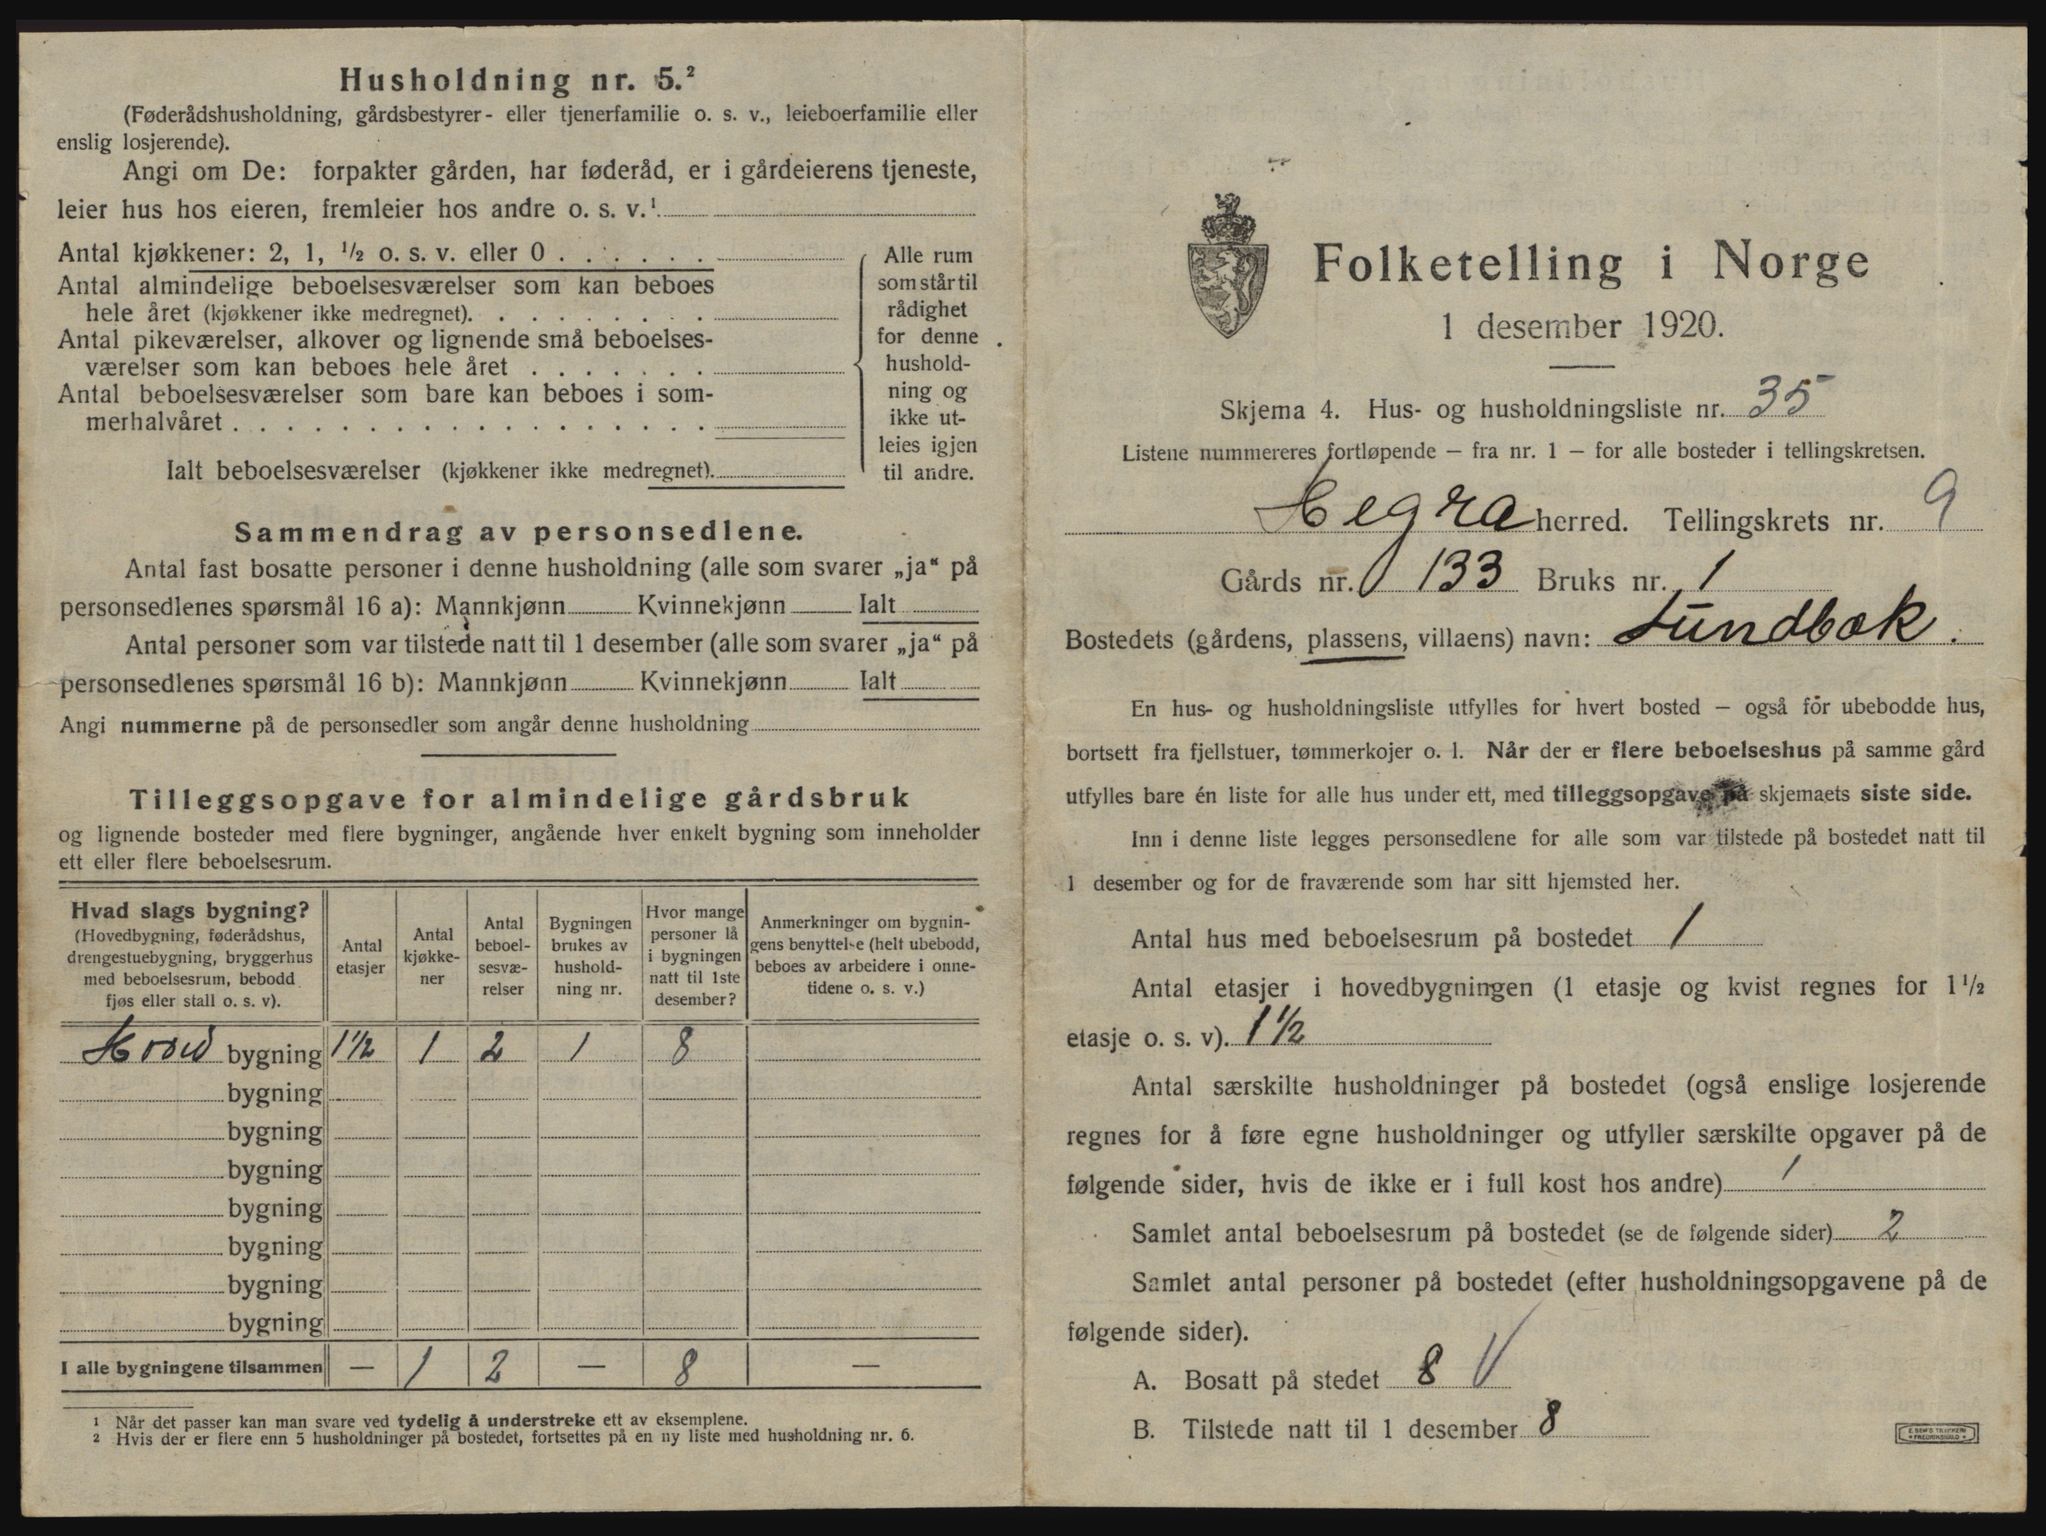 Husholdning nr. 5.²
(Føderådshusholdning, gårdsbestyrer- eller tjenerfamilie o. s. v., leieboerfamilie eller
enslig losjerende).
Angi om De: forpakter gården, har føderåd, er i gårdeierens tjeneste,
leier hus hos eieren, fremleier hos andre o. s. v.¹
Antal kjøkkener: 2, 1, ½ o. s. v. eller 0 . . . . . .
Antal almindelige beboelsesværelser som kan beboes
hele året (kjøkkener ikke medregnet). . . . . . . . .
Antal pikeværelser, alkover og lignende små beboelses-
værelser som kan beboes hele året . . . . . . .
Antal beboelsesværelser som bare kan beboes i som-
merhalvåret . . . . . . . . . . . . . . . . . .
Ialt beboelsesværelser (kjøkkener ikke medregnet).
Alle rum
som står til
rådighet
for denne
hushold-
ning og
ikke ut-
leies igjen
til andre.
Sammendrag av personsedlene.
Antal fast bosatte personer i denne husholdning (alle som svarer „ja“ på
personsedlenes spørsmål 16 a): Mannkjønn Kvinnekjønn Ialt
Antal personer som var tilstede natt til 1 desember (alle som svarer „ja“ på
personsedlenes spørsmål 16 b): Mannkjønn Kvinnekjønn Ialt
Angi nummerne på de personsedler som angår denne husholdning
Tilleggsopgave for almindelige gårdsbruk
og lignende bosteder med flere bygninger, angående hver enkelt bygning som inneholder
ett eller flere beboelsesrum.
Hvad slags bygning?
(Hovedbygning, føderådshus,
drengestuebygning, bryggerhus
med beboelsesrum, bebodd
fjøs eller stall o. s. v).
Antal
etasjer
Antal
kjøkke-
ner
Antal
beboel-
sesvæ-
relser
Bygningen
brukes av
hushold-
ning nr.
Hvor mange
personer lå
i bygningen
natt til 1ste
desember?
Anmerkninger om bygnin-
gens benyttelse (helt ubebodd,
beboes av arbeidere i onne-
tidene o. s. v.)
Hoved bygning 1½ 1 2 1 8
bygning
bygning
bygning
bygning
bygning
bygning
bygning
I alle bygningene tilsammen — 1 2 — 8 —
¹ Når det passer kan man svare ved tydelig å understreke ett av eksemplene.
² Hvis der er flere enn 5 husholdninger på bostedet, fortsettes på en ny liste med husholdning nr. 6.
Folketelling i Norge
1 desember 1920.
Skjema 4. Hus- og husholdningsliste nr. 35
Listene nummereres fortløpende — fra nr. 1 — for alle bosteder i tellingskretsen.
Hegra herred. Tellingskrets nr. 9
Gårds nr. 133 Bruks nr. 1
Bostedets (gårdens, plassens, villaens) navn: Sundbæk.
En hus- og husholdningsliste utfylles for hvert bosted — også for ubebodde hus,
bortsett fra fjellstuer, tømmerkojer o. l. Når der er flere beboelseshus på samme gård
utfylles bare én liste for alle hus under ett, med tilleggsopgave på skjemaets siste side.
Inn i denne liste legges personsedlene for alle som var tilstede på bostedet natt til
1 desember og for de fraværende som har sitt hjemsted her.
Antal hus med beboelsesrum på bostedet 1
Antal etasjer i hovedbygningen (1 etasje og kvist regnes for 1½
etasje o. s. v). 1½
Antal særskilte husholdninger på bostedet (også enslige losjerende
regnes for å føre egne husholdninger og utfyller særskilte opgaver på de
følgende sider, hvis de ikke er i full kost hos andre) 1
Samlet antal beboelsesrum på bostedet (se de følgende sider) 2
Samlet antal personer på bostedet (efter husholdningsopgavene på de
følgende sider).
A. Bosatt på stedet 8 V
B. Tilstede natt til 1 desember 8